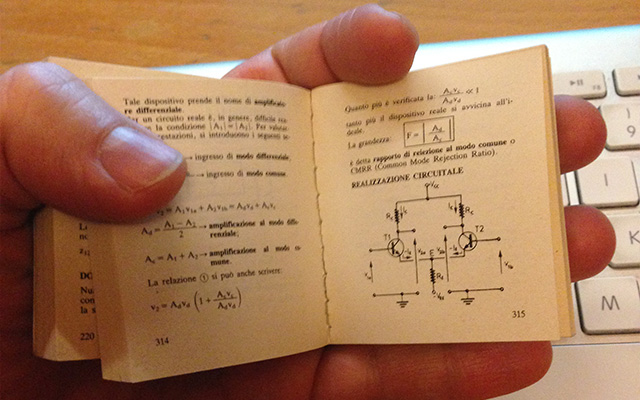 Tale dispositivo prende il nome di amplificato
re differenziale.
er un circuito reale è, in genere, difficile
la condizione |A₁|=|A₂|. Per
si introducono i seguenti
ingresso di modo differenziale,
ingresso di modo comune.
v₂ = A₁v₁ₐ + A₂v₁ᵦ = A_d v_d + A_c v_c
A_d = (A₁ − A₂)/2 → amplificazione al modo diffe
renziale;
A_c = A₁ + A₂ → amplificazione al modo co
mune.
La relazione ① si può anche scrivere:
v₂ = A_d v_d (1 + A_c v_c / A_d v_d)
314
DC
Nu
con
la s
220
Quanto più è verificata la: A_c v_c / A_d v_d ≪ 1
tanto più il dispositivo reale si avvicina all'i-
deale.
La grandezza: F = |A_d / A_c|
è detta rapporto di reiezione al modo comune o
CMRR (Common Mode Rejection Ratio).
REALIZZAZIONE CIRCUITALE
Vcc
Rc Ic Ic Rc
T1 T2
E
RE
315
9
I
I
W